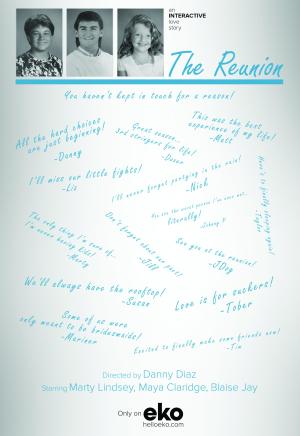 an
INTERACTIVE
love
story
The Reunion
You haven't kept in touch for a reason!
All the hard choices
are just beginning!
-Danny
Great season...
3rd stringers for life!
-Deven
This was the best
experience of my life!
-Matt
I'll miss our little fights!
-Liz
I'll never forget partying in the rain!
-Nick
Here's to finally sleeping again!
-Taylor
You are the worst person I've ever met...
literally!
-Johnny V
The only thing I'm sure of...
I'm never having kids!
-Marty
Don't forget about our pact!
-Jill
See you at the reunion!
-JDog
We'll always have the rooftop!
-Susan
Love is for suckers!
-Tober
Some of us were
only meant to be bridesmaids!
-Mariner
Excited to finally make some friends now!
-Tim
Directed by Danny Diaz
Starring Marty Lindsey, Maya Claridge, Blaise Jay
Only on eko
helloeko.com